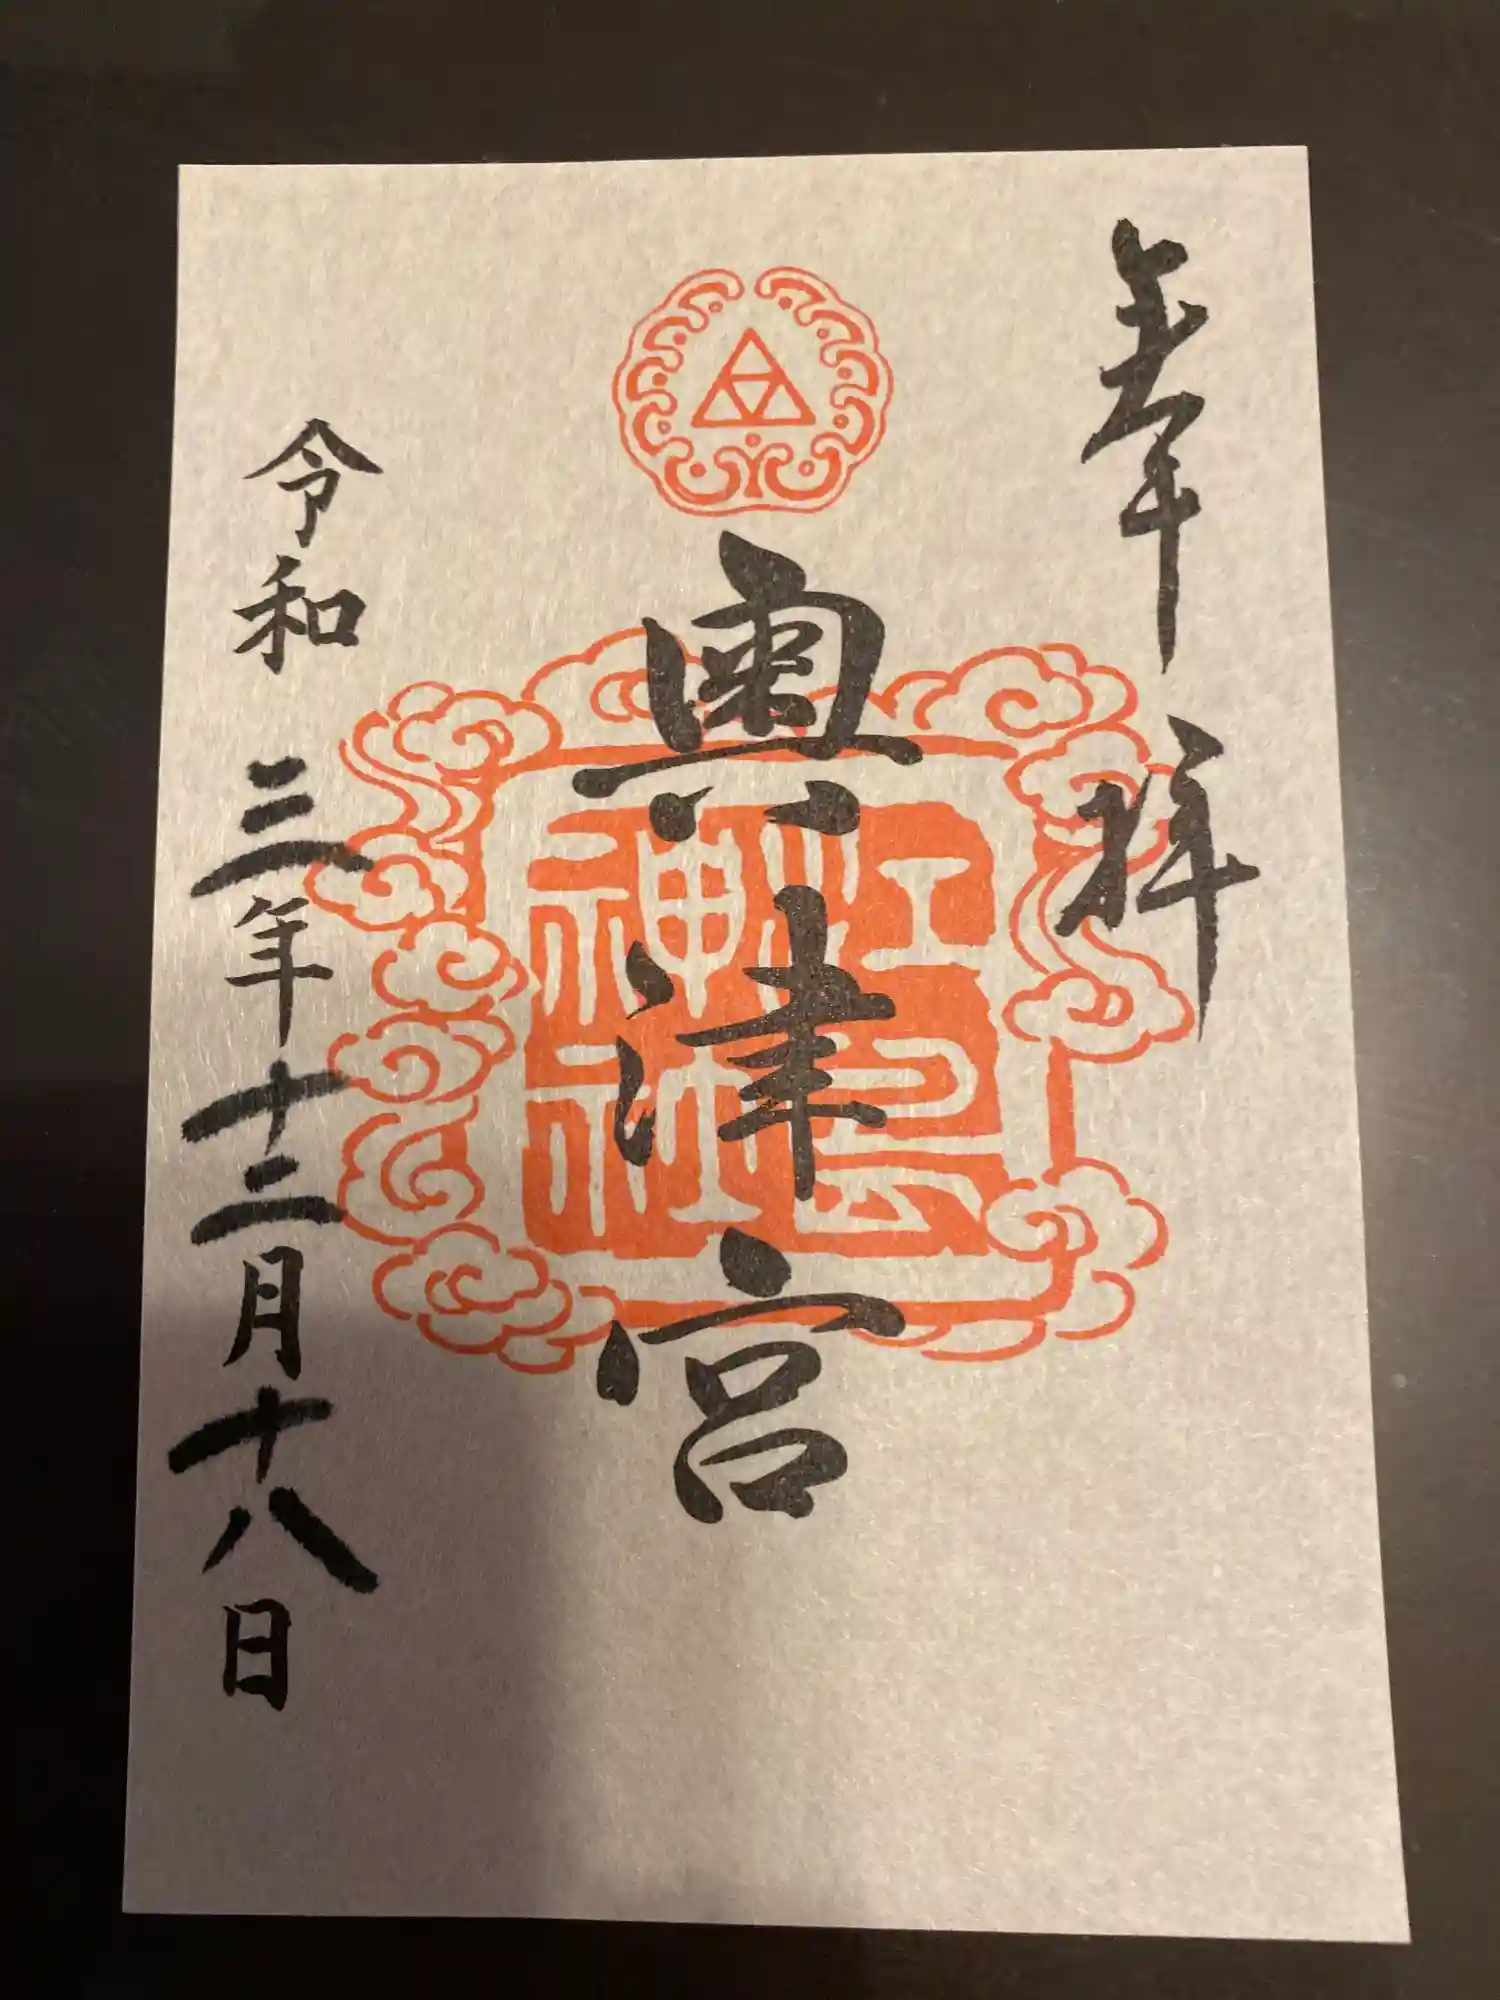 奉拝
奥津宮
江島神社
令和三年十二月十八日